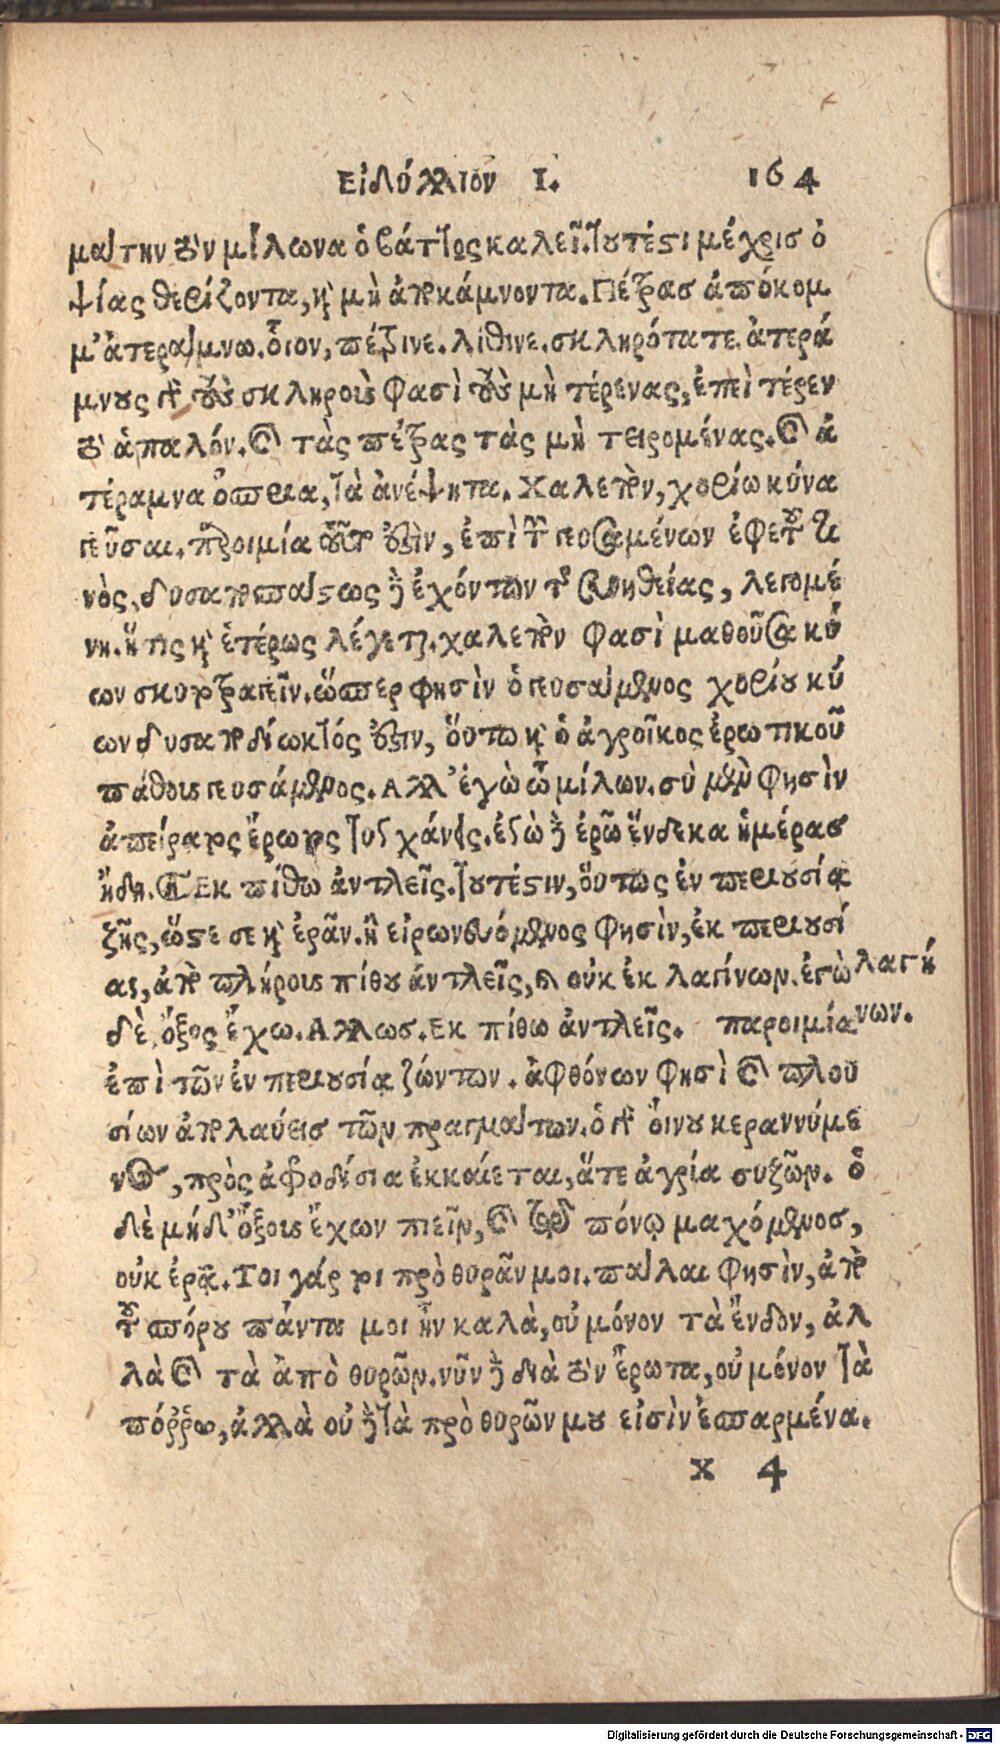 Εἰδύλλιον Ι. 164
ματην τὸν μίλωνα ὁ βάττος καλεῖ. τουτέστι μέχρισ ὀ
ψίας θερίζοντα, καὶ μὴ ἀποκάμνοντα. Πέτρασ ἀπόκομ
μ’ ἀτεράμνω. οἷον, πέτρινε. λίθινε. σκληρότατε. ἀτερά
μνους γὰρ τοὺς σκληροὺς φασὶ τοὺς μὴ τέρενας, ἐπεὶ τέρεν
τὸ ἁπαλόν. καὶ τὰς πέτρας τὰς μὴ τειρομένας. καὶ ἀ
τέραμνα ὄσπρια, τὰ ἀνέψητα. Χαλεπὸν, χορίω κύνα
γεῦσαι. παροιμία αὕτη ἐστὶν, ἐπὶ τῶν γευσαμένων ἐφετοῦ τι
νὸς, δυσαποσπάστως δὲ ἐχόντων τῆς συνηθείας, λεγομέ
νη. ἥτις καὶ ἑτέρως λέγεται. χαλεπὸν φασὶ μαθοῦσα κύ
ων σκυτοτραγεῖν. ὥσπερ φησὶν ὁ γευσάμενος χορίου κύ
ων δυσαποδίωκτός ἐστιν, οὕτω καὶ ὁ ἀγροῖκος ἐρωτικοῦ
πάθους γευσάμενος. Αλλ’ ἐγὼ ὦ μίλων. σὺ μὲν φησὶν
ἀπείρατος ἔρωτος τυγχάνεις. ἐγὼ δὲ ἐρῶ ἕνδεκα ἡμέρασ
ἤδη. Εκ πίθω ἀντλεῖς. τουτέστιν, οὕτως ἐν περιουσίᾳ
ζῆς, ὥστε σε καὶ ἐρᾶν. ἢ εἰρωνευόμενος φησὶν, ἐκ περιουσί
ας, ἀπὸ πλήρους πίθου ἀντλεῖς, καὶ οὐκ ἐκ λαγίνων. ἐγὼ λαγή
δὲ ὄξος ἔχω. Αλλως. Εκ πίθω ἀντλεῖς. παροιμία νων.
ἐπὶ τῶν ἐν περιουσίᾳ ζώντων. ἀφθόνων φησὶ καὶ πλου
σίων ἀπολαύεισ τῶν πραγμάτων. ὁ γὰρ οἴνου κεραννύμε
νος, πρὸς ἀφροδίσια ἐκκαίεται, ἅτε ἀγρία συζῶν. ὁ
δὲ μήδ’ ὄξους ἔχων πιεῖν, καὶ τῷ πόνῳ μαχόμενοσ,
οὐκ ἐρᾷ. Τοι γάρ τοι πρὸ θυρᾶν μοι. πάλαι φησὶν, ἀπὸ
τοῦ σπόρου πάντα μοι ἦν καλὰ, οὐ μόνον τὰ ἔνδον, ἀλ
λὰ καὶ τὰ ἀπὸ θυρῶν. νῦν δὲ διὰ τὸν ἔρωτα, οὐ μόνον τὰ
πόῤῥω, ἀλλὰ οὐ δὲ τὰ πρὸ θυρῶν μου εἰσὶν ἐσπαρμένα.
Χ 4
Digitalisierung gefördert durch die Deutsche Forschungsgemeinschaft - DFG